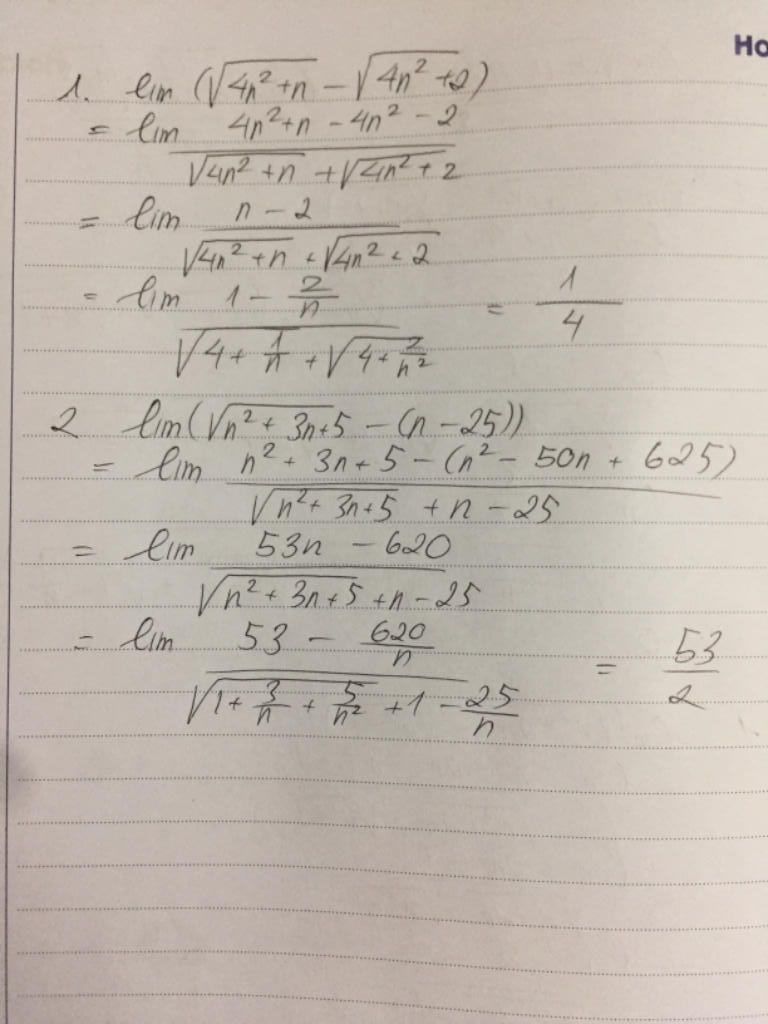 Ho
1. lim (√(4n²+n) − √(4n²+2))
= lim (4n²+n − 4n² − 2)/(√(4n²+n) + √(4n²+2))
= lim (n − 2)/(√(4n²+n) + √(4n²+2))
= lim (1 − 2/n)/(√(4+1/n) + √(4+2/n²)) = 1/4
2 lim(√(n²+3n+5) − (n−25))
= lim (n²+3n+5−(n²−50n+625))/(√(n²+3n+5) + n − 25)
= lim (53n − 620)/(√(n²+3n+5) + n − 25)
= lim (53 − 620/n)/(√(1+3/n+5/n²) + 1 − 25/n) = 53/2